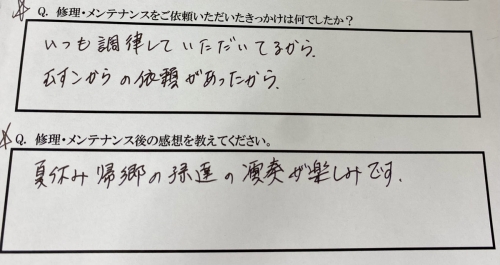 Q. 修理・メンテナンスをご依頼いただいたきっかけは何でしたか？
いつも調律していただいてるから.
むすこからの依頼があったから.
Q. 修理・メンテナンス後の感想を教えてください。
夏休み帰郷の孫達の演奏が楽しみです.